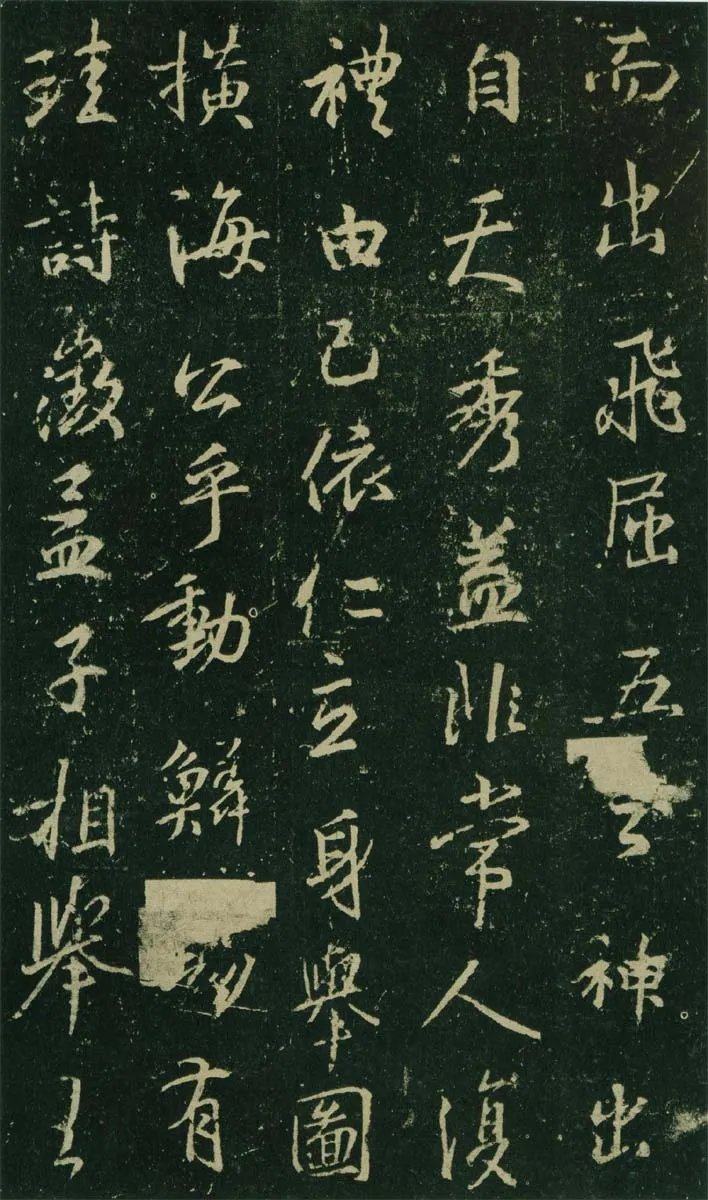 而出飛屈五神出
自天秀蓋非常人復
禮由己依仁立身舉圖
横海公乎動鱗有
珪詩徵孟子相舉